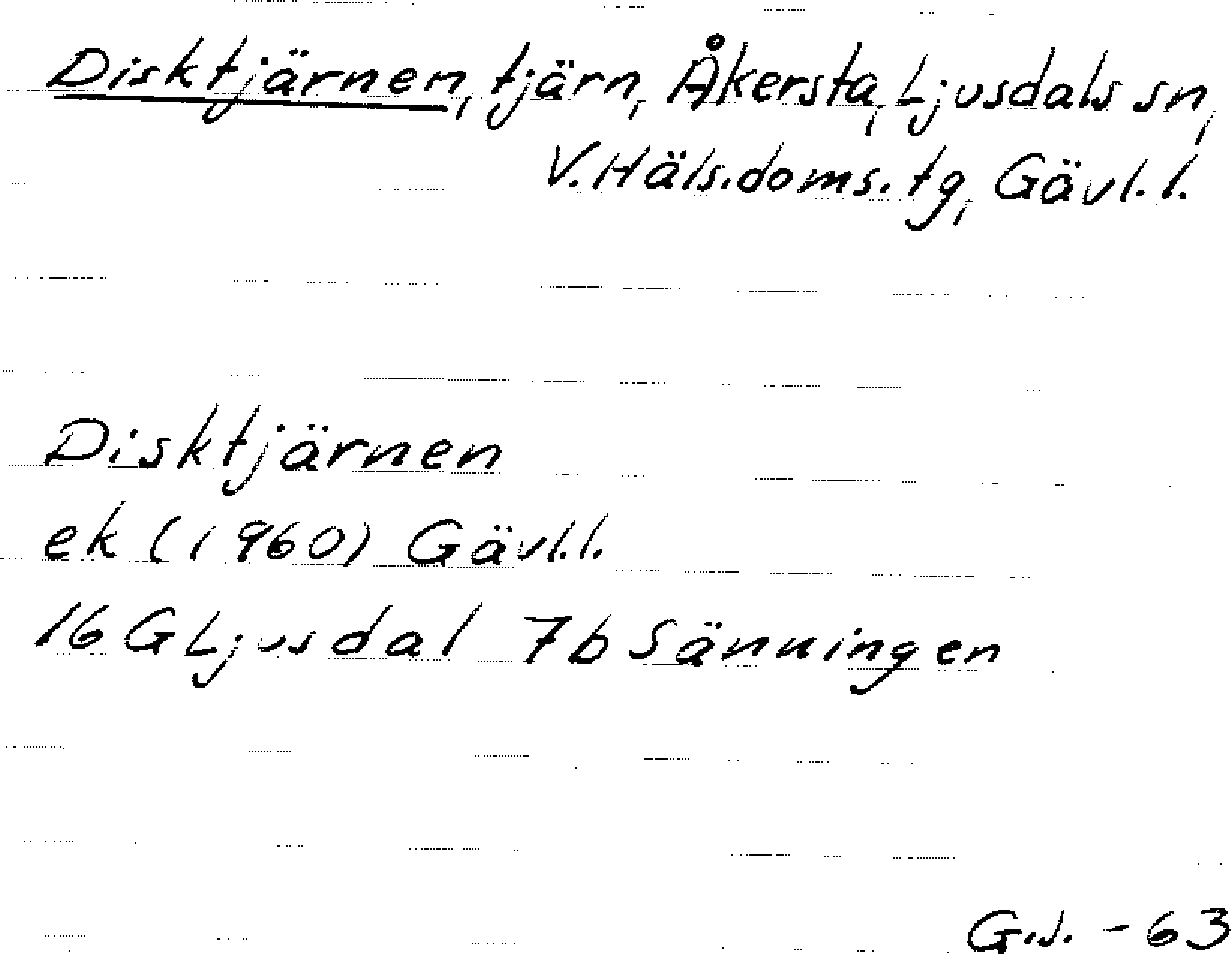 Disktjärnen, tjärn, Åkersta, Ljusdals sn,
V. Häls. doms. tg, Gävl. l.
Disktjärnen
ek (1960) Gävl. l.
16 G Ljusdal 7b Sänningen
G.J. - 63